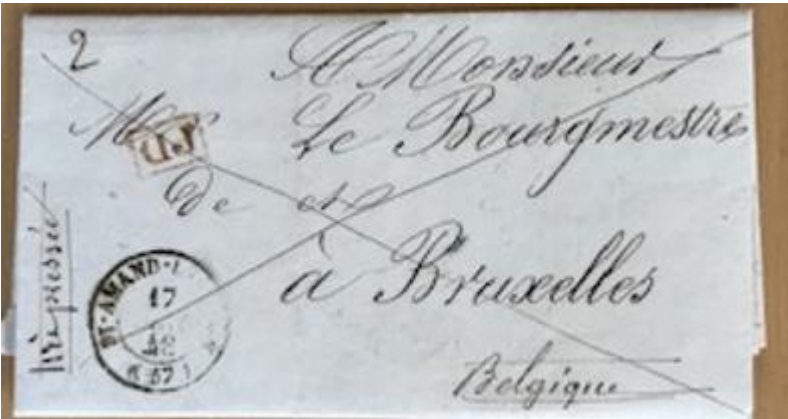 2
A Monsieur
Le Bourgmestre
PD
de
à Bruxelles
Belgique
très pressée
ST-AMAND-L
17
(57)